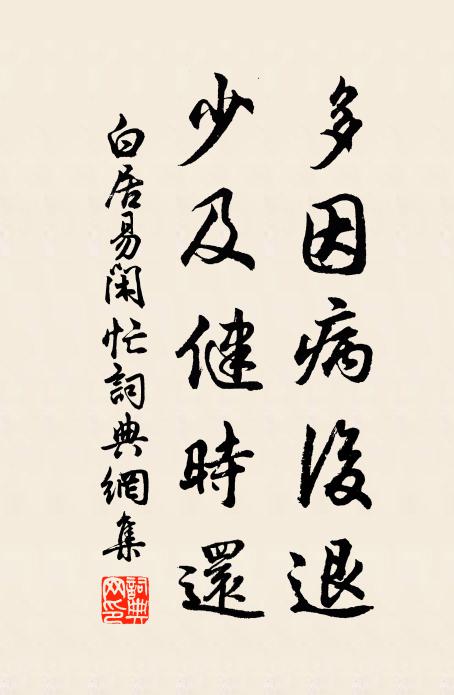 多因病後退
少及健時還
白居易閑忙詞典網集
詞典網印